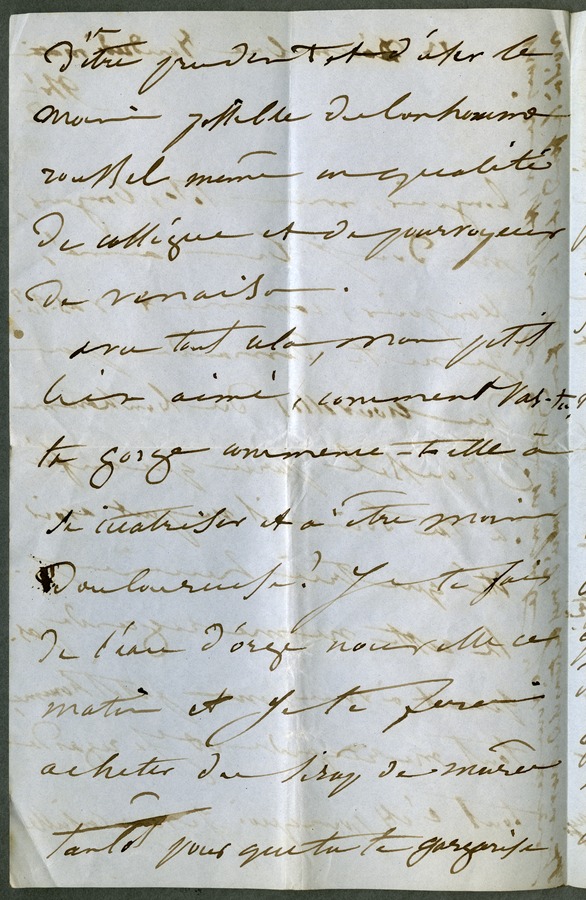 d'être prudent et d'user le
moins possible du bonhomme
roussel même en qualité
de collègue et de pourvoyeur
de venaison.
avec tout cela, mon petit
bien aimé, comment vas-tu,
ta gorge commence-t-elle à
se cicatriser et à être moins
douloureuse? Je te fais
de l'eau d'orge nouvelle ce
matin et je te ferai
acheter du sirop de mûres
tantôt pour que tu te gargarise